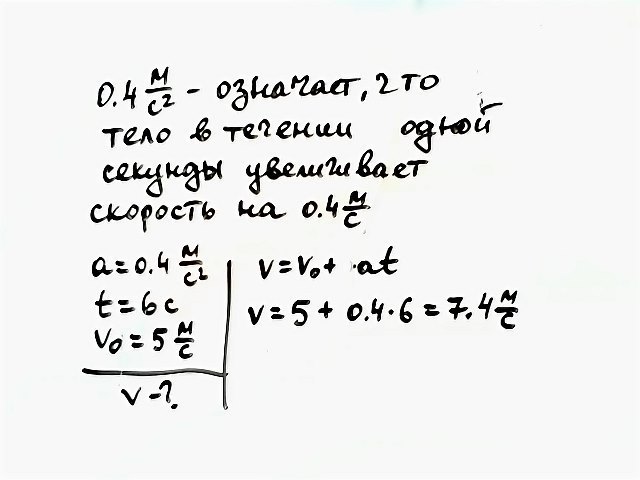 0.4 м/с² - означает, что
тело в течении одной
секунды увеличивает
скорость на 0.4 м/с
a = 0.4 м/с²
t = 6 с
v₀ = 5 м/с
v - ?
v = v₀ + at
v = 5 + 0.4 · 6 = 7.4 м/с